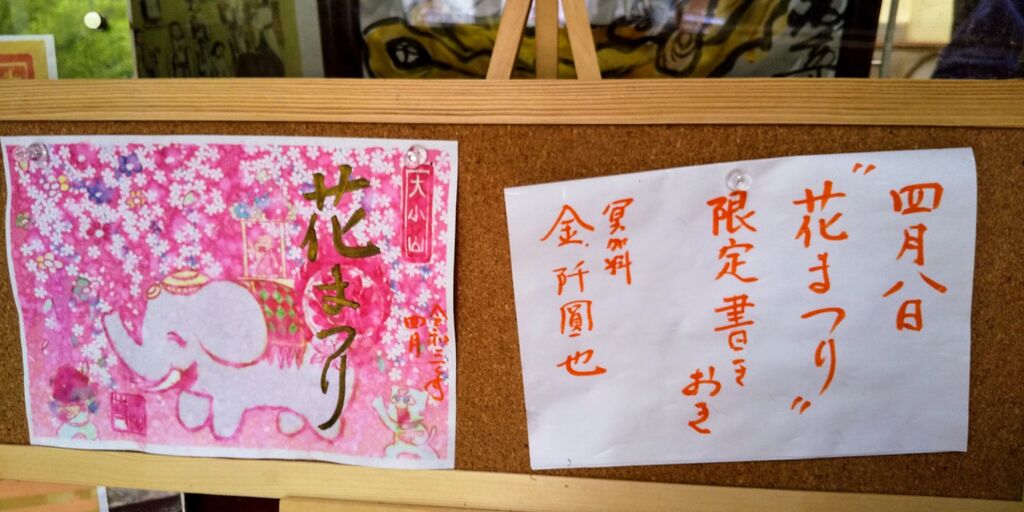 大小山
花まつり
令和三年
四月
四月八日
〝花まつり〟
限定書き
おき
冥加料
金阡圓也